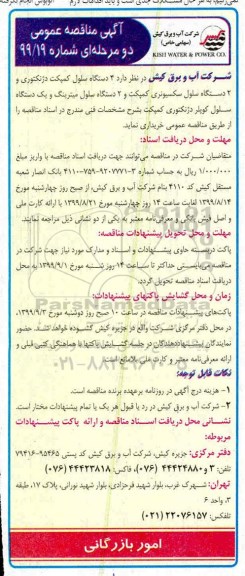 شرکت آب و برق کیش
(سهامی خاص)
KISH WATER & POWER CO.
آگهی مناقصه عمومی
دو مرحله‌ای شماره ۹۹/۱۹
شرکت آب و برق کیش در نظر دارد ۳ دستگاه سلول کمپکت دژنکتوری و
۲ دستگاه سلول سکسیونری کمپکت و ۲ دستگاه سلول میترینگ و یک دستگاه
سلول کوپلر دژنکتوری کمپکت بشرح مشخصات فنی مندرج در اسناد مناقصه را
از طریق مناقصه عمومی خریداری نماید.
مهلت و محل دریافت اسناد:
متقاضیان شرکت در مناقصه می‌توانند جهت دریافت اسناد مناقصه با واریز مبلغ
۱/۰۰۰/۰۰۰ ریال به حساب شماره ۳-۹۲۰۷۷۷۱-۷۵۹-۴۱۱۰ بانک انصار شعبه
مستقل کیش کد ۴۱۱۰ بنام شرکت آب و برق کیش، از صبح روز چهارشنبه مورخ
۱۳۹۹/۸/۱۴ لغایت ساعت ۱۴ روز چهارشنبه مورخ ۱۳۹۹/۸/۲۱ با ارائه کارت ملی
و اصل فیش بانکی و معرفی‌نامه معتبر به یکی از دو نشانی ذیل مراجعه نمایند.
مهلت و محل تحویل پیشنهادات مناقصه:
پاکت دربسته حاوی پیشنهادات و اسناد و مدارک مورد نیاز جهت شرکت در
مناقصه می‌بایستی حداکثر تا ساعت ۱۴ روز شنبه مورخ ۱۳۹۹/۹/۱ به محل
دریافت اسناد تحویل گردد.
زمان و محل گشایش پاکتهای پیشنهادات:
پاکت‌های پیشنهادات مناقصه در ساعت ۱۰ صبح روز دوشنبه مورخ ۱۳۹۹/۹/۳
در محل دفتر مرکزی شرکت واقع در جزیره کیش گشوده خواهد شد. حضور
نمایندگان پیشنهاددهندگان در جلسه گشایش پاکتها با هماهنگی کتبی قبلی و
ارائه معرفی‌نامه معتبر و کارت ملی بلامانع است.
نکات قابل توجه:
۱- هزینه درج آگهی در روزنامه برعهده برنده مناقصه است.
۲- شرکت آب و برق کیش در رد یا قبول هر یک یا تمام پیشنهادات مختار است.
نشانی محل دریافت اسناد مناقصه و ارائه پاکت پیشنهادات
مربوطه:
دفتر مرکزی: جزیره کیش، شرکت آب و برق کیش کد پستی ۹۵۴۶۵-۷۹۴۱۶
تلفن: ۳ و ۴۴۴۲۴۸۸۰ (۰۷۶)، فاکس: ۴۴۴۲۳۸۱۸ (۰۷۶)
تهران: شهرک غرب، بلوار شهید فرحزادی، بلوار شهید نورانی، پلاک ۱۷، طبقه
۳، واحد ۶
تلفکس: ۲۲۰۷۶۱۵۷ (۰۲۱)
امور بازرگانی